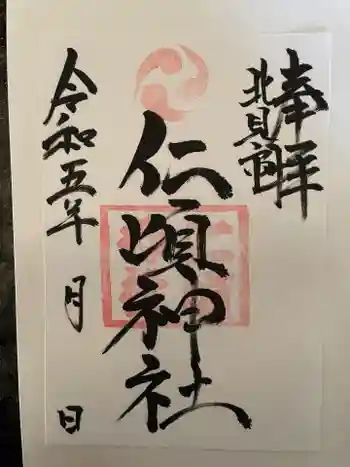 奉拝
北見市
仁頃神社
令和五年 月 日